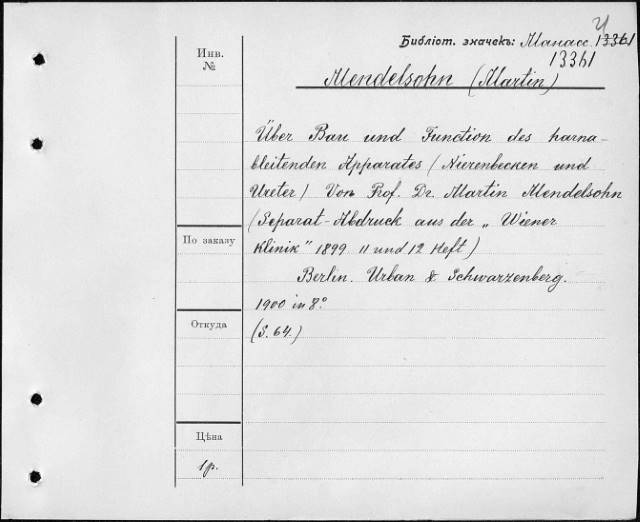 И
Библіот. значекъ: Манасс. 13361
13361
Инв.
№
Mendelsohn (Martin)
Über Bau und Function des harna-
bleitenden Apparates (Nierenbecken und
Ureter) Von Prof. Dr. Martin Mendelsohn
(Separat-Abdruck aus der „Wiener
Klinik" 1899 11 und 12 Heft)
По заказу
Berlin. Urban & Schwarzenberg.
1900 in 8°
Откуда
(S. 64.)
Цѣна
1р.